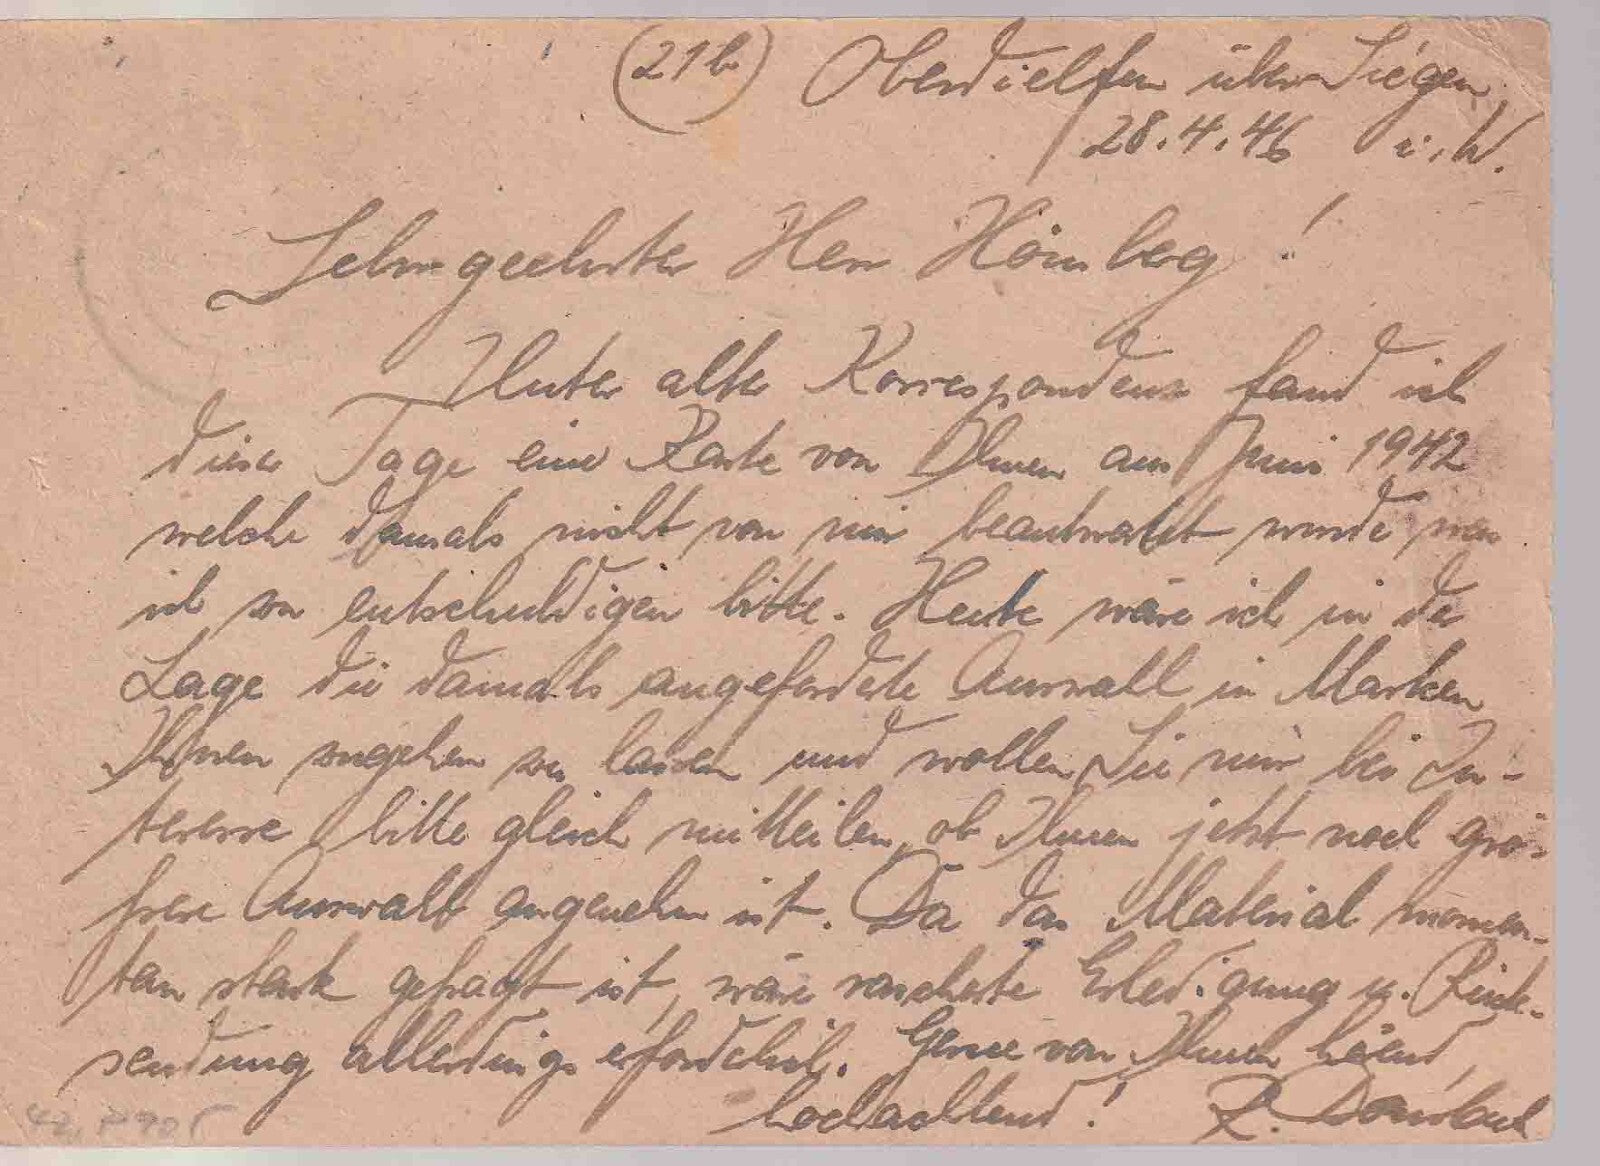 (21b) Oberdielfen über Siegen,
28.4.46 i.W.
Sehr geehrter Herr Hömberg!
Unter alter Korrespondenz fand ich
dieser Tage eine Karte von Ihnen aus Juni 1942
welche damals nicht von mir beantwortet wurde was
ich zu entschuldigen bitte. Heute wäre ich in der
Lage die damals angeforderte Auswahl in Marken
Ihnen zugehen zu lassen und wollen Sie mir bei In-
teresse bitte gleich mitteilen, ob Ihnen jetzt noch grö-
ßere Auswahl angenehm ist. Da das Material momen-
tan stark gefragt ist, wäre rascheste Erledigung u. Rück-
sendung allerdings erforderlich. Gerne von Ihnen hörend,
hochachtend!